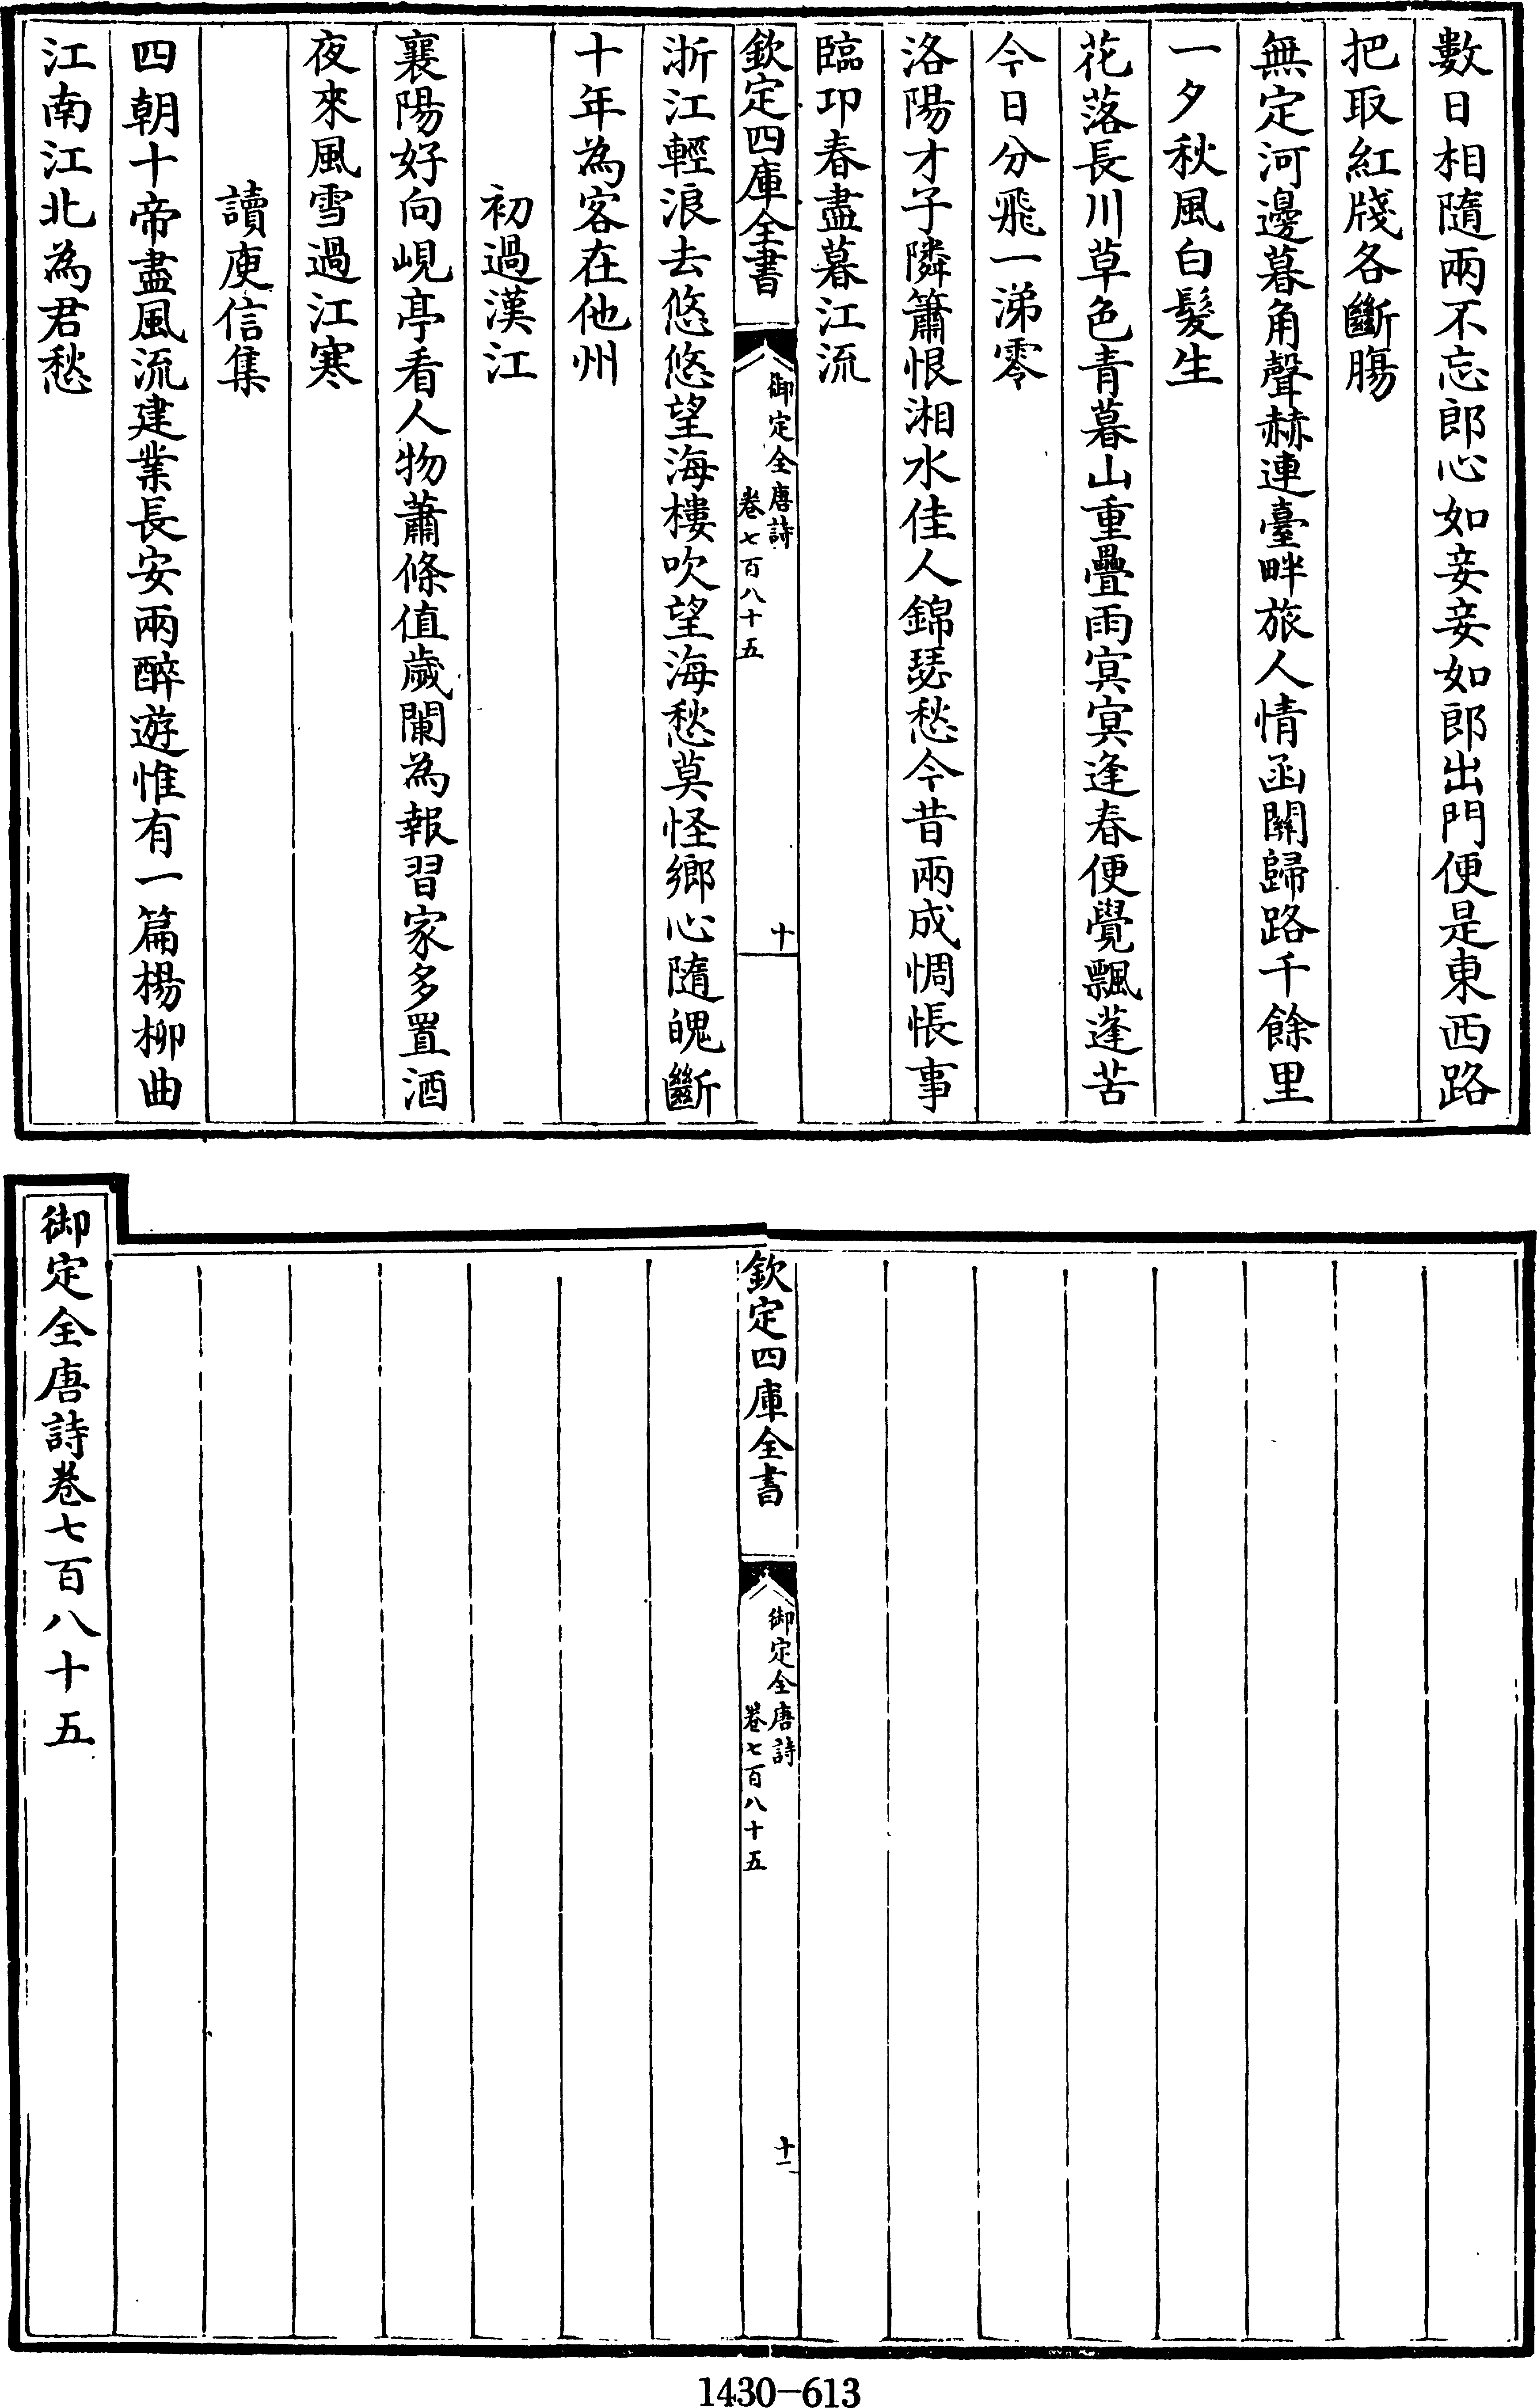 數日相隨兩不忘郎心如妾妾如郎出門便是東西路
把取紅牋各斷腸
無定河邊暮角聲赫連臺畔旅人情函關歸路千餘里
一夕秋風白髮生
花落長川草色青暮山重疊雨冥冥逢春便覺飄蓬苦
今日分飛一涕零
洛陽才子隣簫恨湘水佳人錦瑟愁今昔兩成惆悵事
臨邛春盡暮江流
欽定四庫全書
御定全唐詩
卷七百八十五
十
浙江輕浪去悠悠望海樓吹望海愁莫怪鄉心隨魄斷
十年為客在他州
初過漢江
襄陽好向峴亭看人物蕭條值歲闌為報習家多置酒
夜來風雪過江寒
讀庾信集
四朝十帝盡風流建業長安兩醉遊惟有一篇楊柳曲
江南江北為君愁
欽定四庫全書
御定全唐詩
卷七百八十五
十一
御定全唐詩卷七百八十五
1430-613